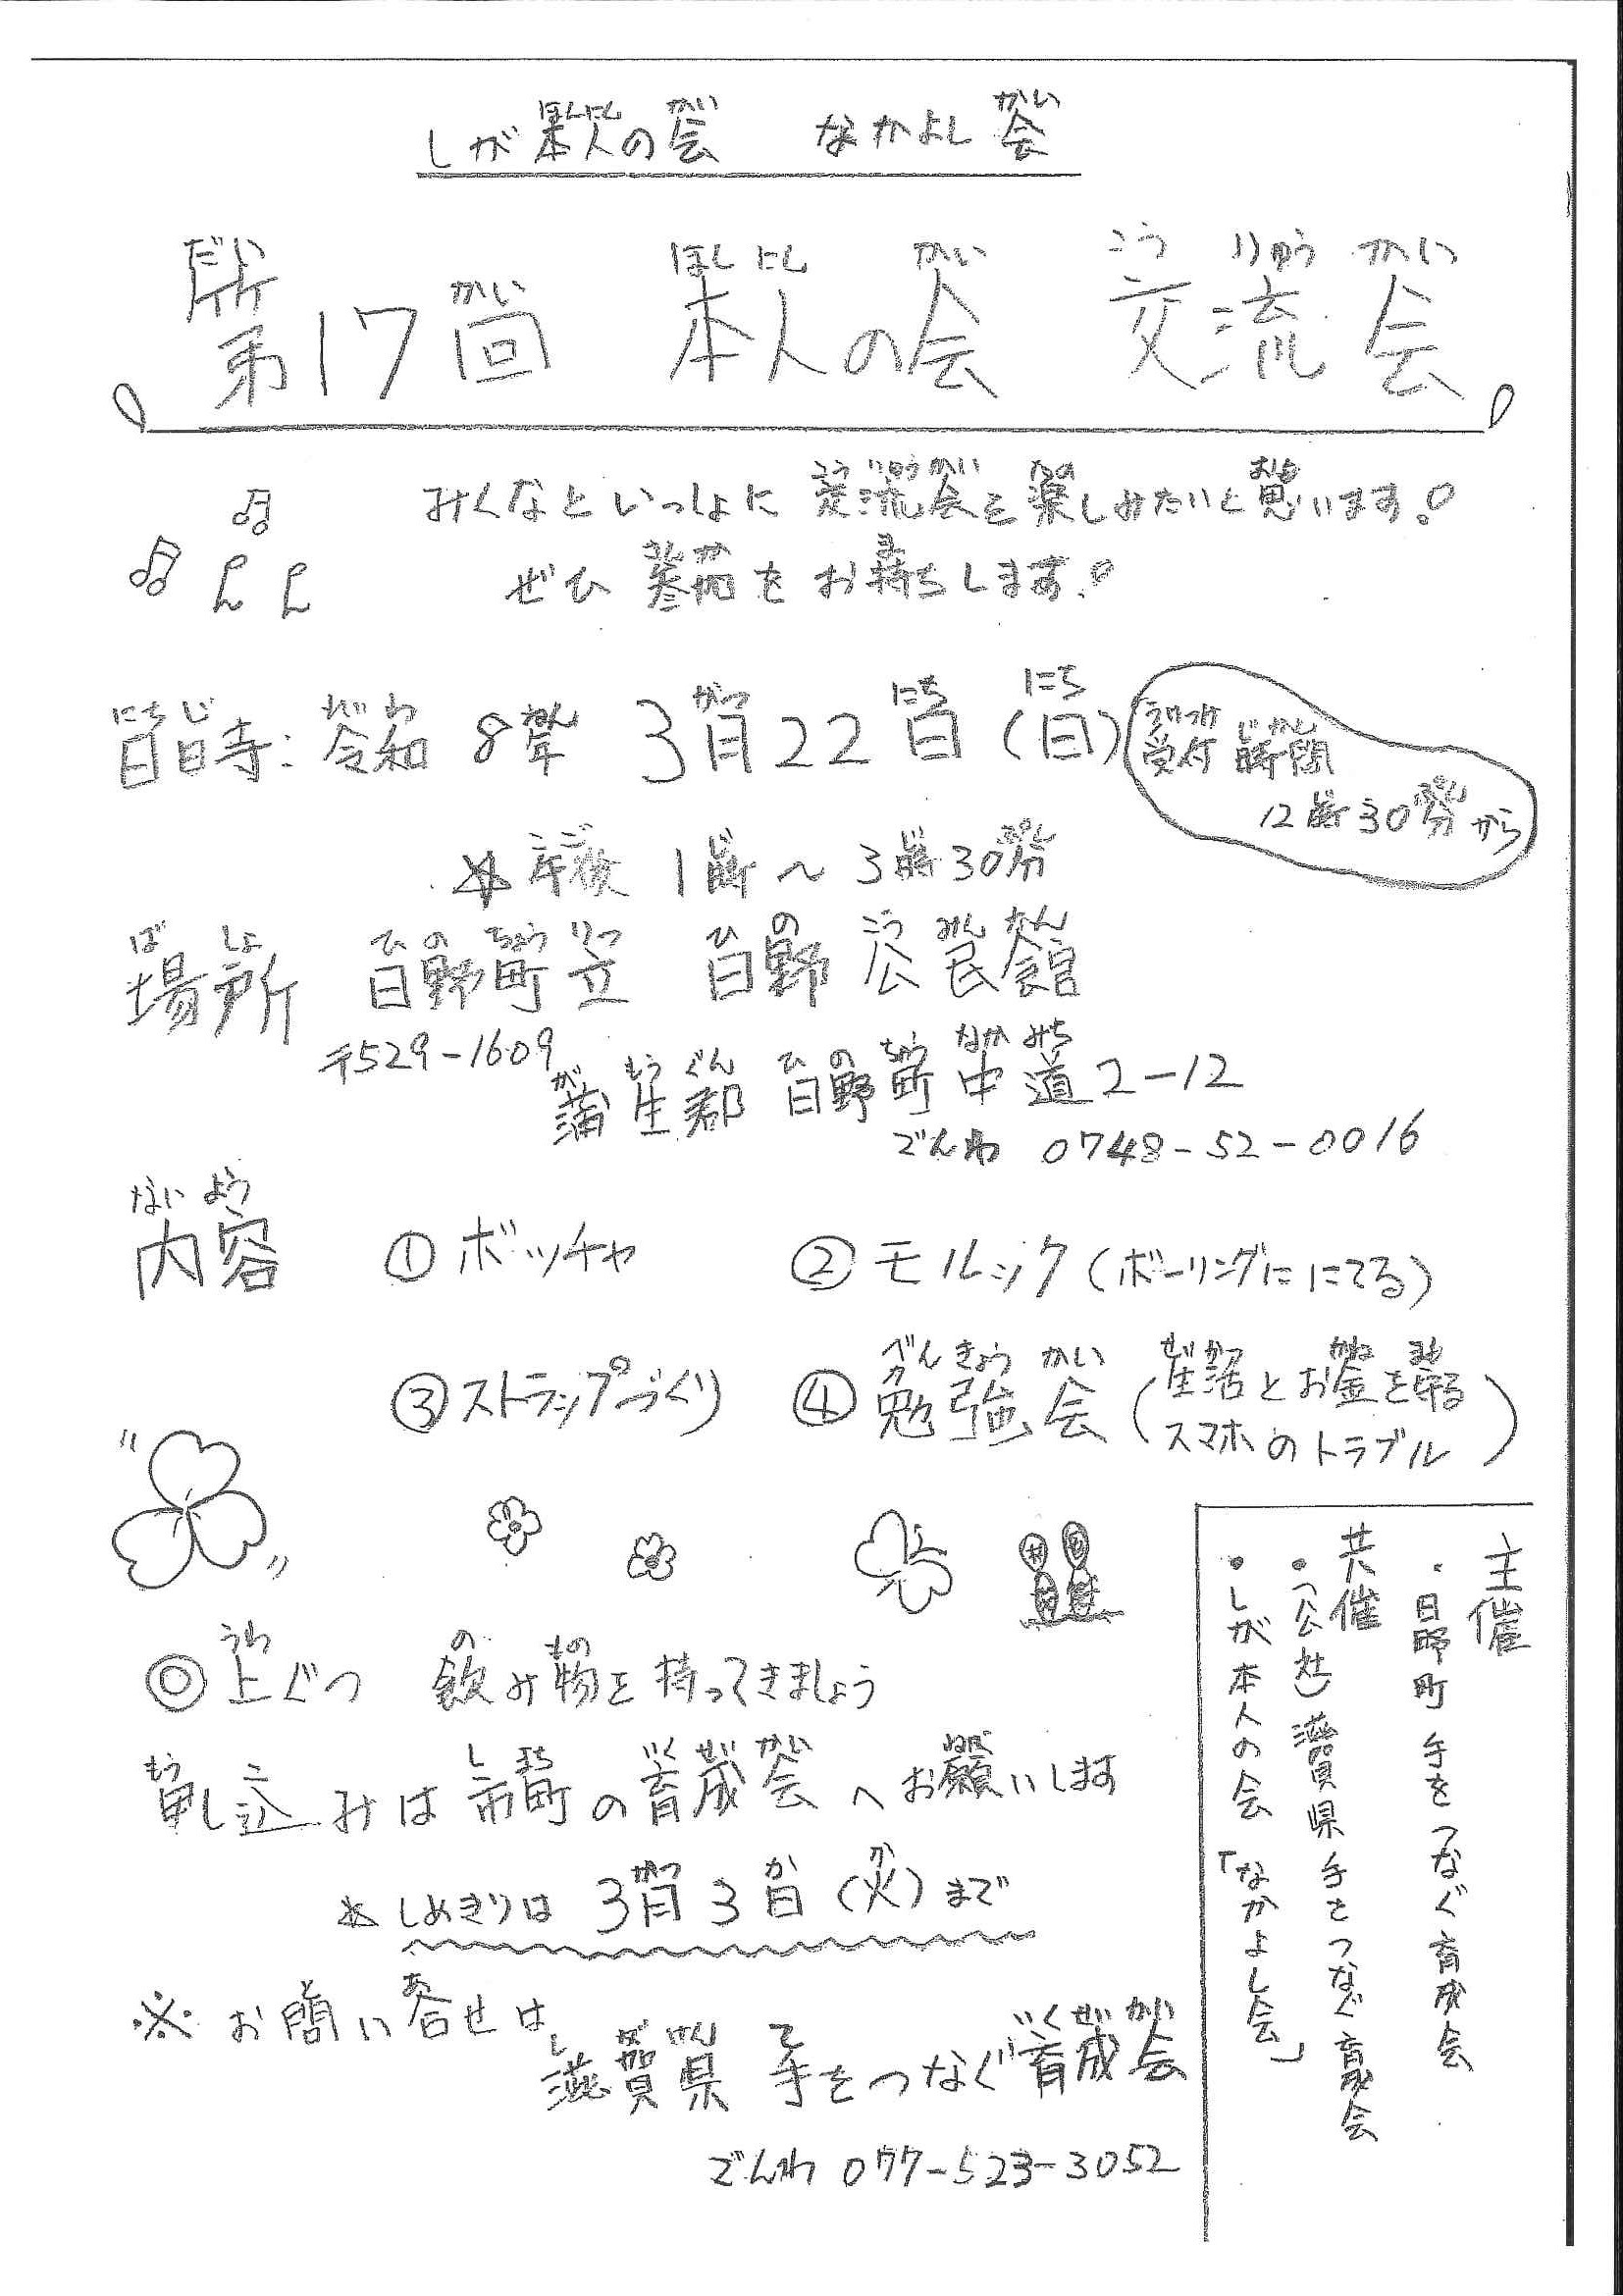 しが本人の会　なかよし会
第17回　本人の会　交流会
みんなといっしょに交流会を楽しみたいと思います!
ぜひ参加をお待ちします!
日時:令和8年3月22日(日)
受付時間
12時30分から
☆午後1時〜3時30分
場所　日野町立　日野公民館
〒529-1609
蒲生郡日野町中道2-12
でんわ 0748-52-0016
内容　①ボッチャ　②モルック(ボーリングににてる)
③ストラップづくり　④勉強会(生活とお金を守る
スマホのトラブル)
主催
・日野町手をつなぐ育成会
共催
・(公社)滋賀県手をつなぐ育成会
・しが本人の会「なかよし会」
◎上ぐつ　飲み物を持ってきましょう
申し込みは市町の育成会へお願いします
☆しめきりは3月3日(火)まで
※お問い合せは
滋賀県 手をつなぐ育成会
でんわ 077-523-3052